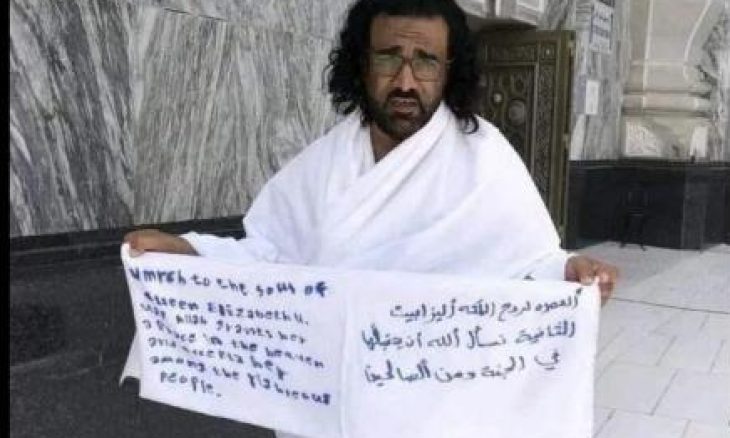 Umrah to the soul of
Queen Elizabeth II,
may Allah grants her
a place in the heaven
and accepts her
among the righteous
people.
العمره لروح الملكه أليزابيت
الثانية نسأل الله أن يتقبلها
في الجنة ومن الصالحين